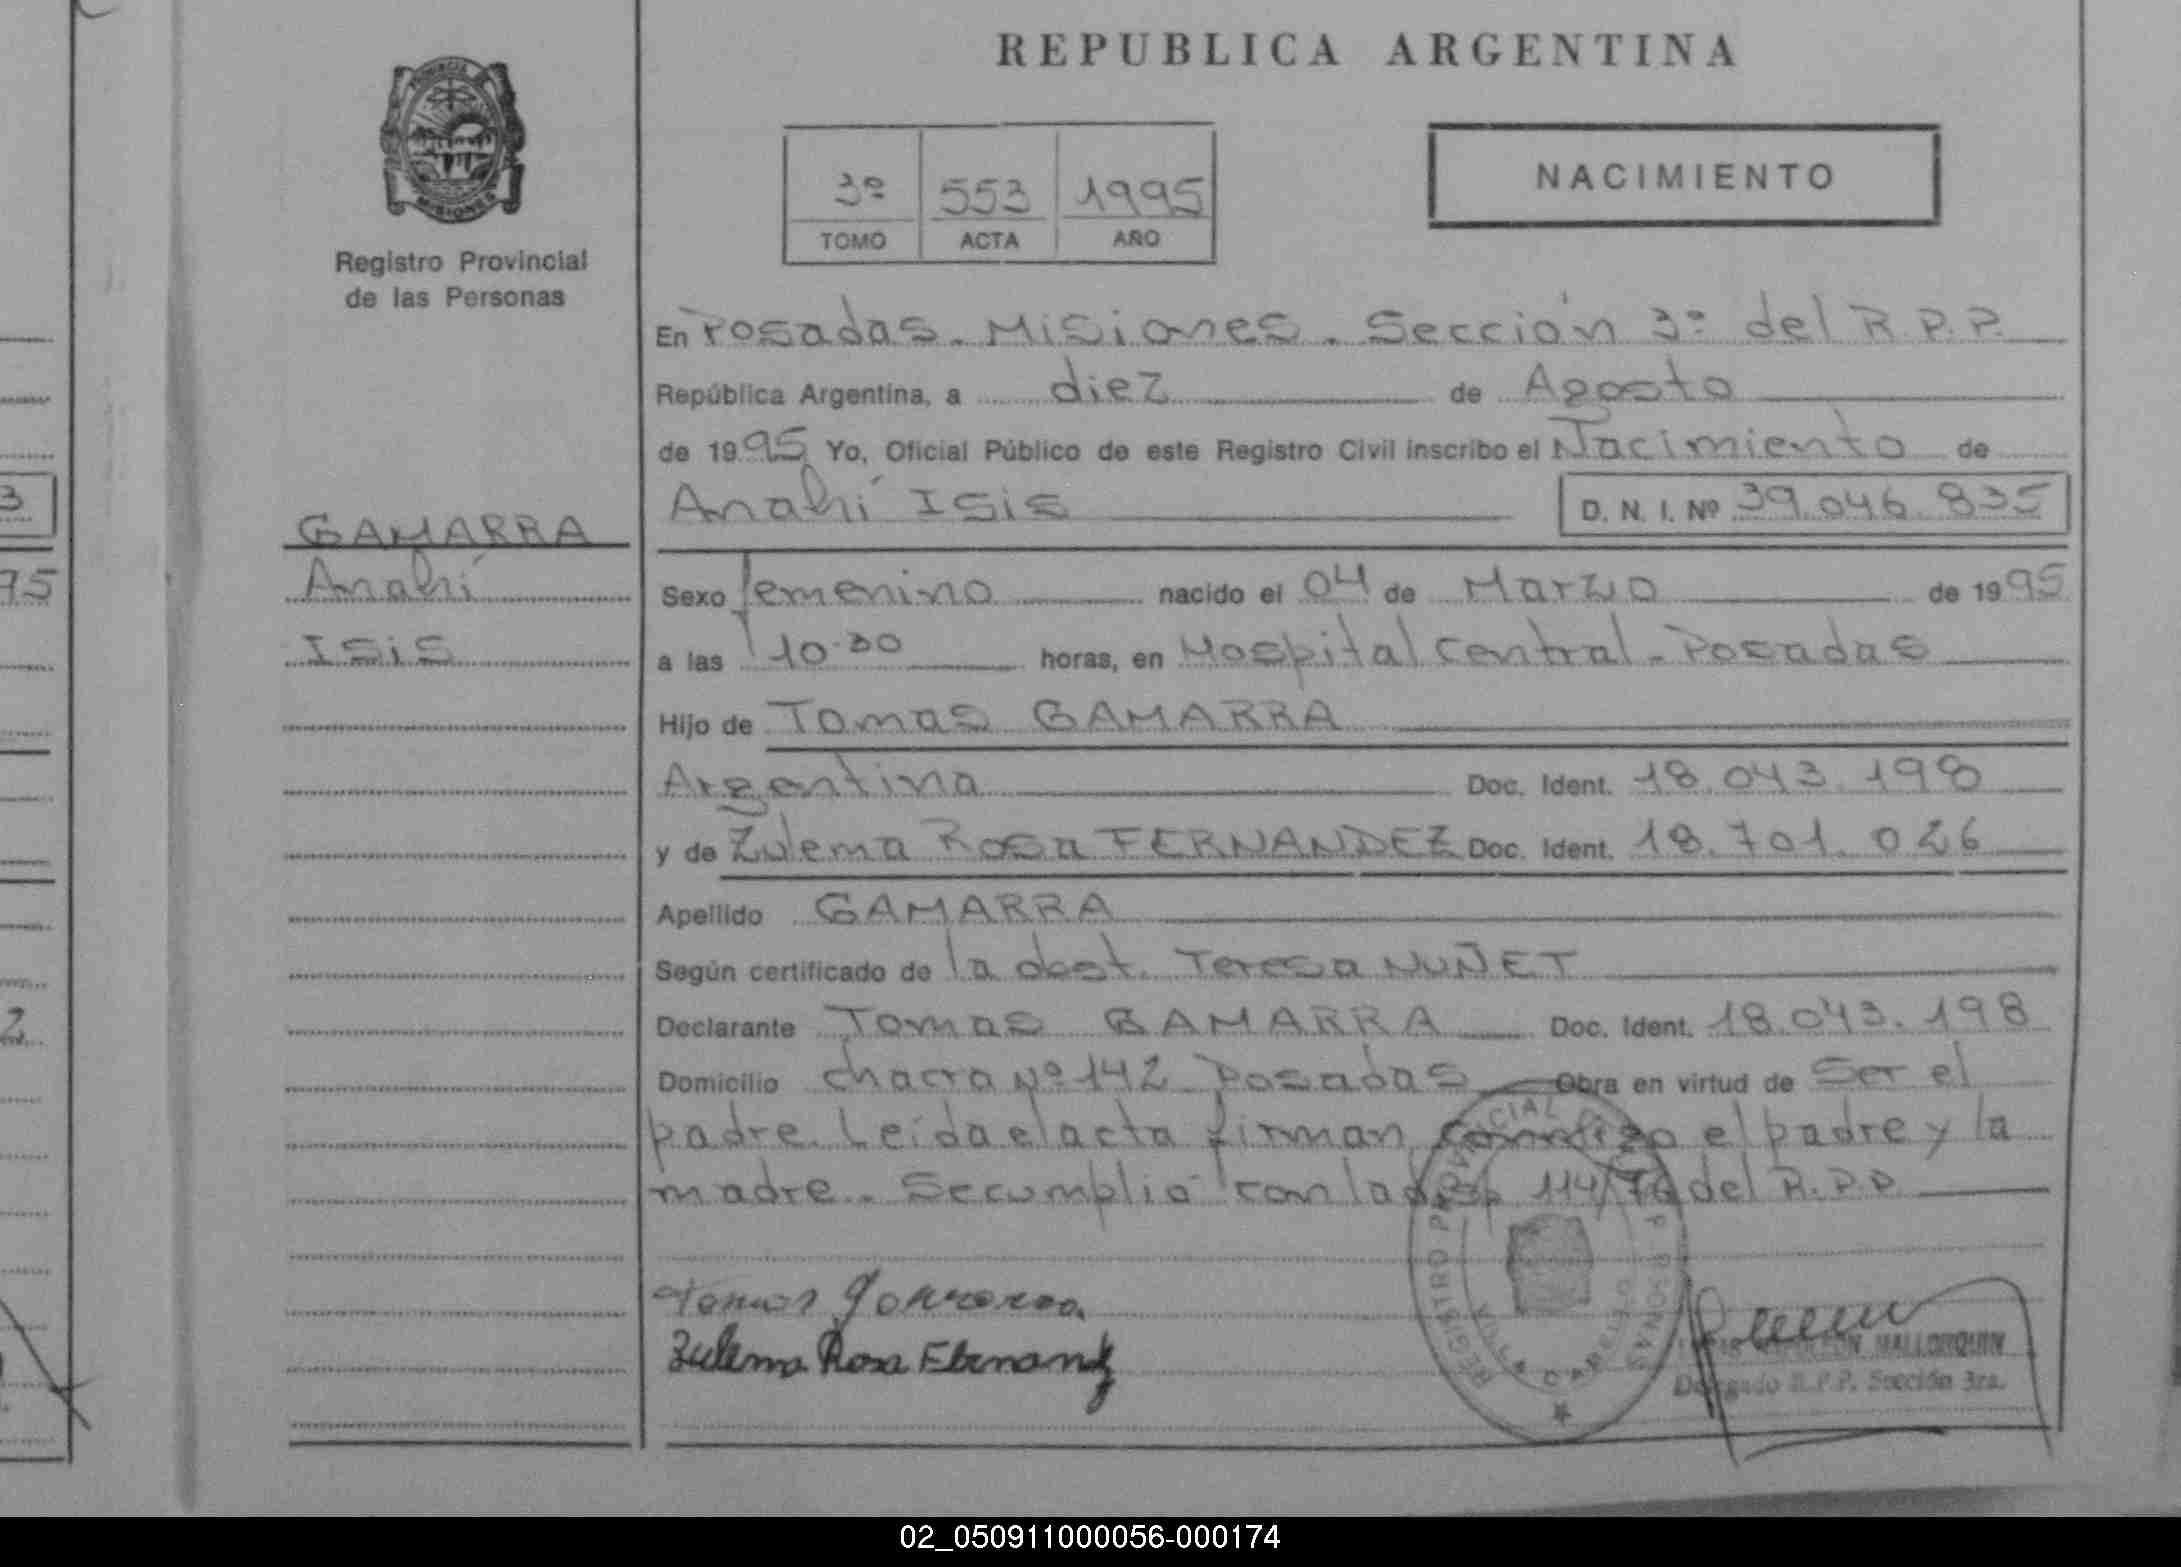 REPUBLICA ARGENTINA
PROVINCIA DE MISIONES
Registro Provincial
de las Personas
3º 553 1995
TOMO ACTA AÑO
NACIMIENTO
En Posadas. Misiones. Sección 3º del R.P.P.
República Argentina, a diez de Agosto
de 1995 Yo, Oficial Público de este Registro Civil inscribo el Nacimiento de
Anahí Isis D. N. I. Nº 39.046.835
GAMARRA
Anahí
Isis
Sexo femenino nacido el 04 de Marzo de 1995
a las 10.30 horas, en Hospital Central - Posadas
Hijo de Tomas GAMARRA
Argentina Doc. Ident. 18.043.198
y de Zulema Rosa FERNANDEZ Doc. Ident. 18.701.026
Apellido GAMARRA
Según certificado de la obst. Teresa NUÑET
Declarante Tomas GAMARRA Doc. Ident. 18.043.198
Domicilio chacra Nº 142 Posadas Obra en virtud de Ser el
padre. Leída el acta firman conmigo el padre y la
madre. Se cumplió con la disp 114/76 del R.P.P.
Tomas Gamarra
Zulema Rosa Fernandez
REGISTRO PROVINCIAL DE LAS PERSONAS
MALLORQUIN
Delegado R.P.P. Sección 3ra.
3
95
2
02_050911000056-000174